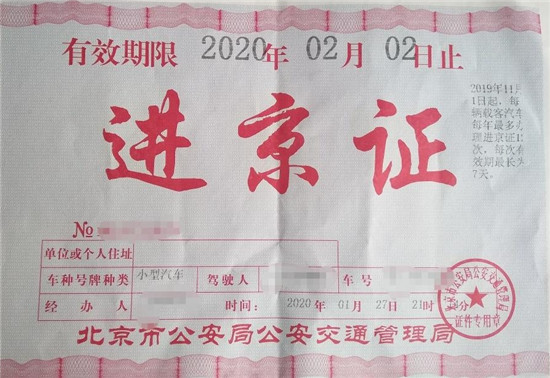 有效期限 2020年 02月 02日止
进京证
2019年11月
1日起，每
辆载客汽车
每年最多办
理进京证12
次，每次有
效期最长为
7天。
№
单位或个人住址
车种号牌种类 小型汽车 驾驶人 车号
经办人 时间： 2020年 01月 27日 21时 分
北京市公安局公安交通管理局
北京市公安局公安交通管理局
证件专用章